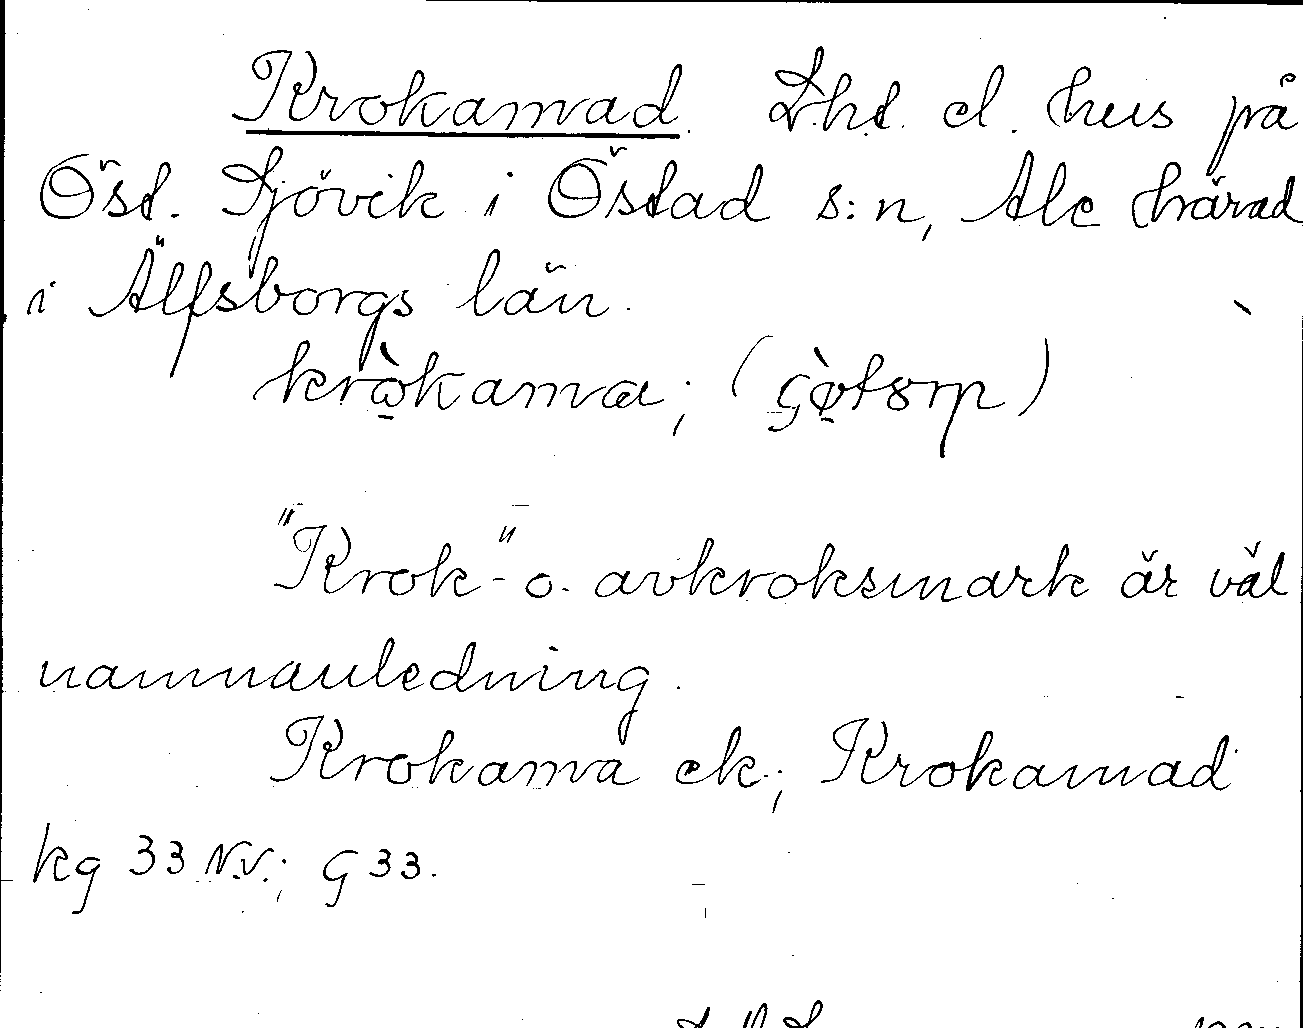 Krokamad. Lht. el. hus på
Öst. Sjövik i Östad s:n, Ale härad
i Älfsborgs län.
kròkama; (gøtorp)
"Krok-" o. avkroksmark är väl
namnanledning.
Krokama ek.; Krokamad
kg 33 N.V.; G 33.